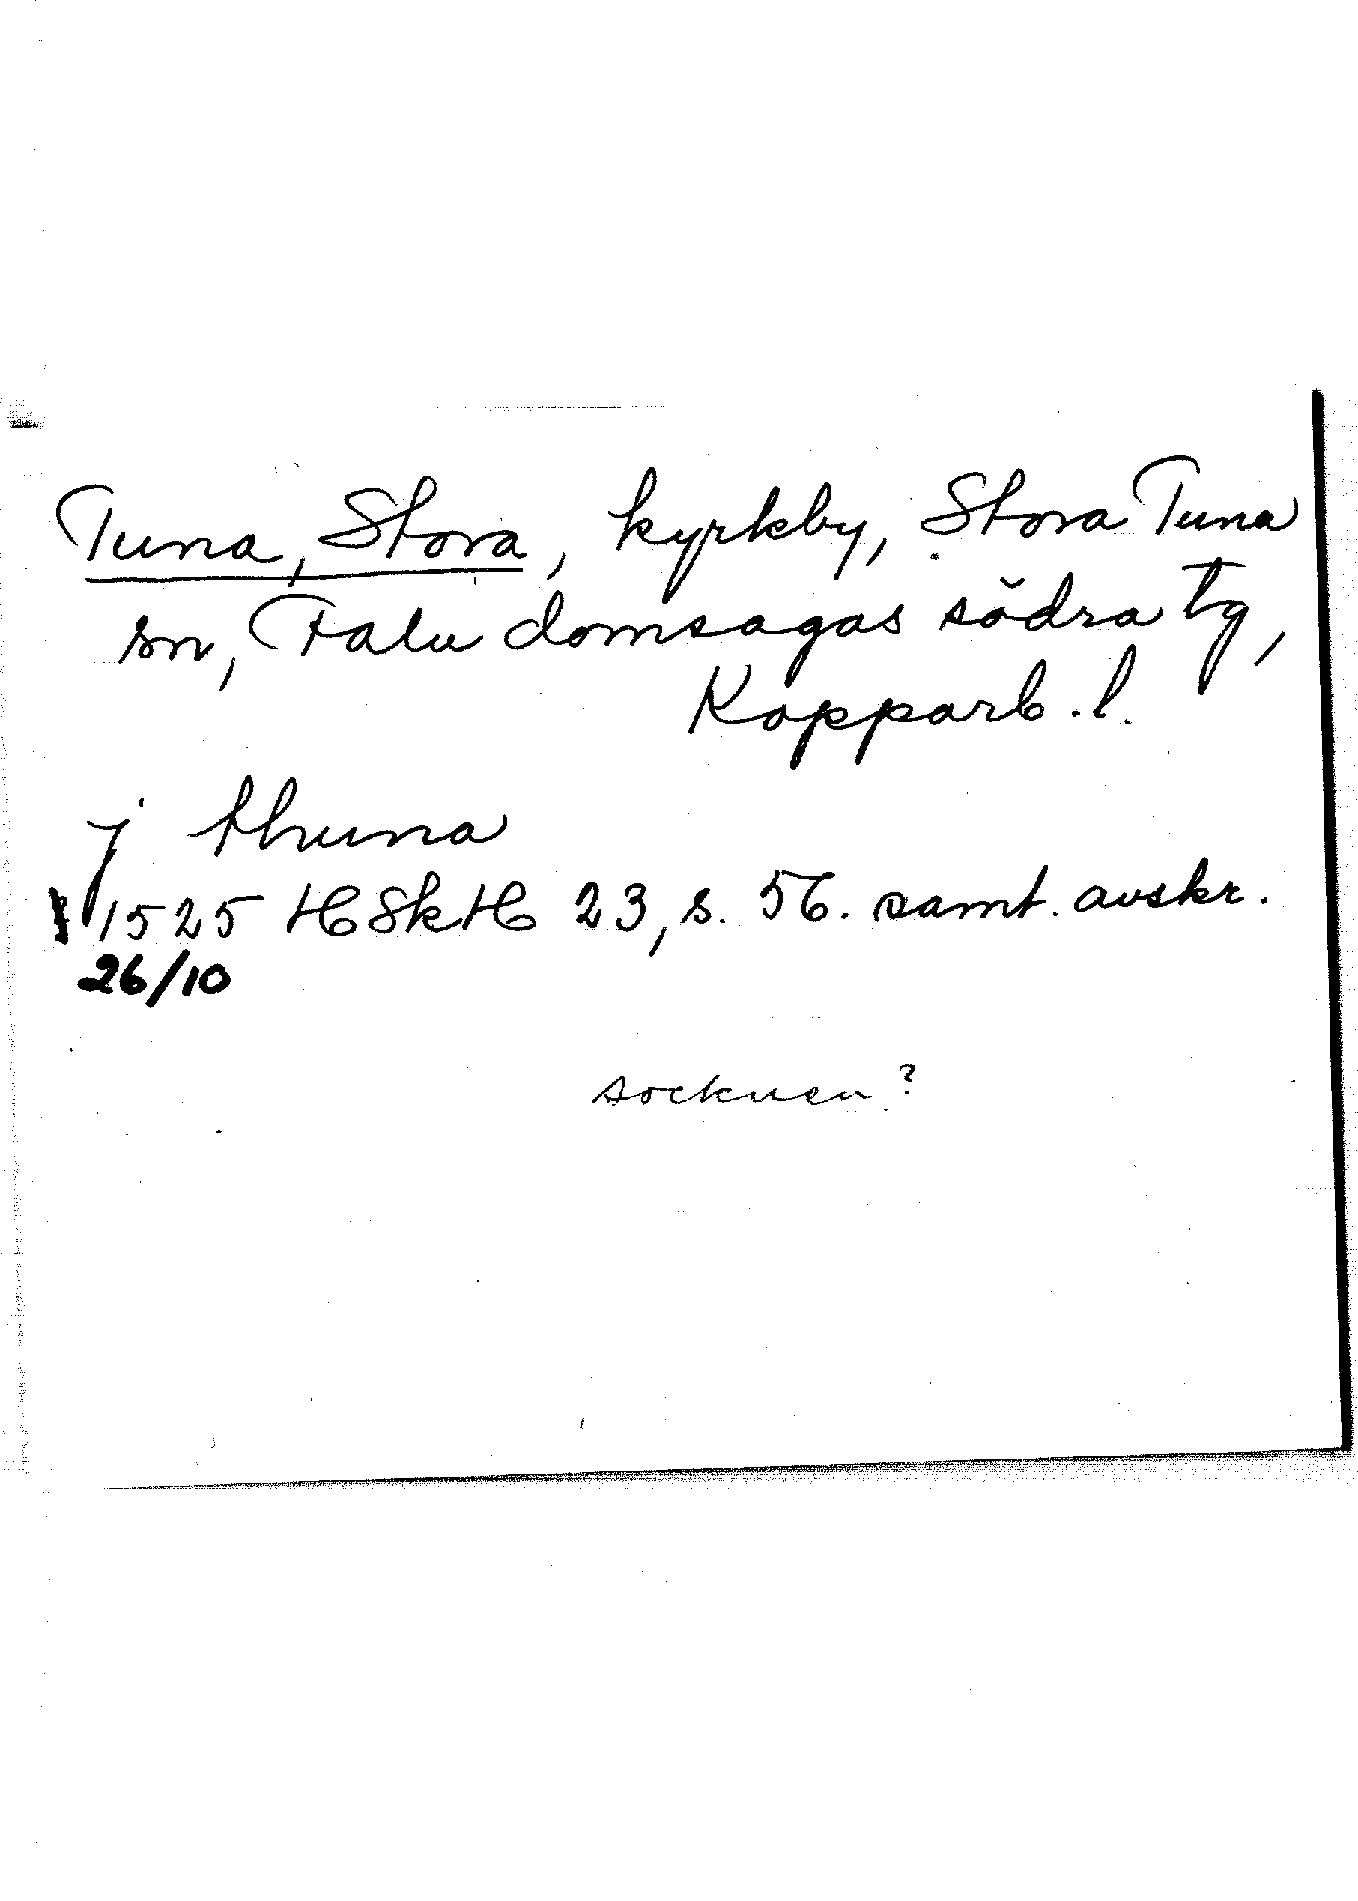 Tuna, Stora, kyrkby, Stora Tuna
sn, Falu domsagas södra tg,
Kopparb. l.
j thuna
1525 HSkH 23, s. 56. samt. avskr.
26/10
socknen?